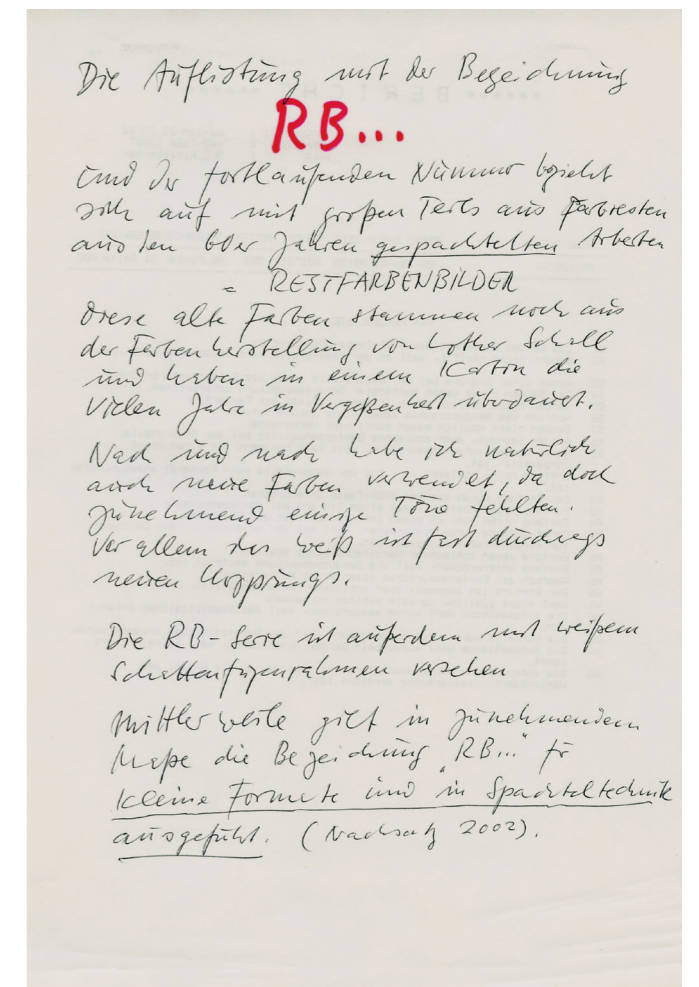 Die Auflistung mit der Bezeichnung
RB...
und der fortlaufenden Nummer bezieht
sich auf mit großen Teils aus Farbresten
aus den 60er Jahren gespachtelten Arbeiten
= RESTFARBENBILDER
Diese alte Farben stammen noch aus
der Farbenherstellung von Lothar Schall
und haben in einem Karton die
vielen Jahre in Vergeßenheit überdauert.
Nach und nach habe ich natürlich
auch neue Farben verwendet, da doch
zunehmend einige Töne fehlten.
Vor allem das Weiß ist fast durchwegs
neuen Ursprungs.
Die RB-Serie ist außerdem mit weißem
Schattenfugenrahmen versehen
Mittlerweile gilt in zunehmendem
Maße die Bezeichnung "RB..." für
kleine Formate und in Spachteltechnik
ausgeführt. (Nachsatz 2002).